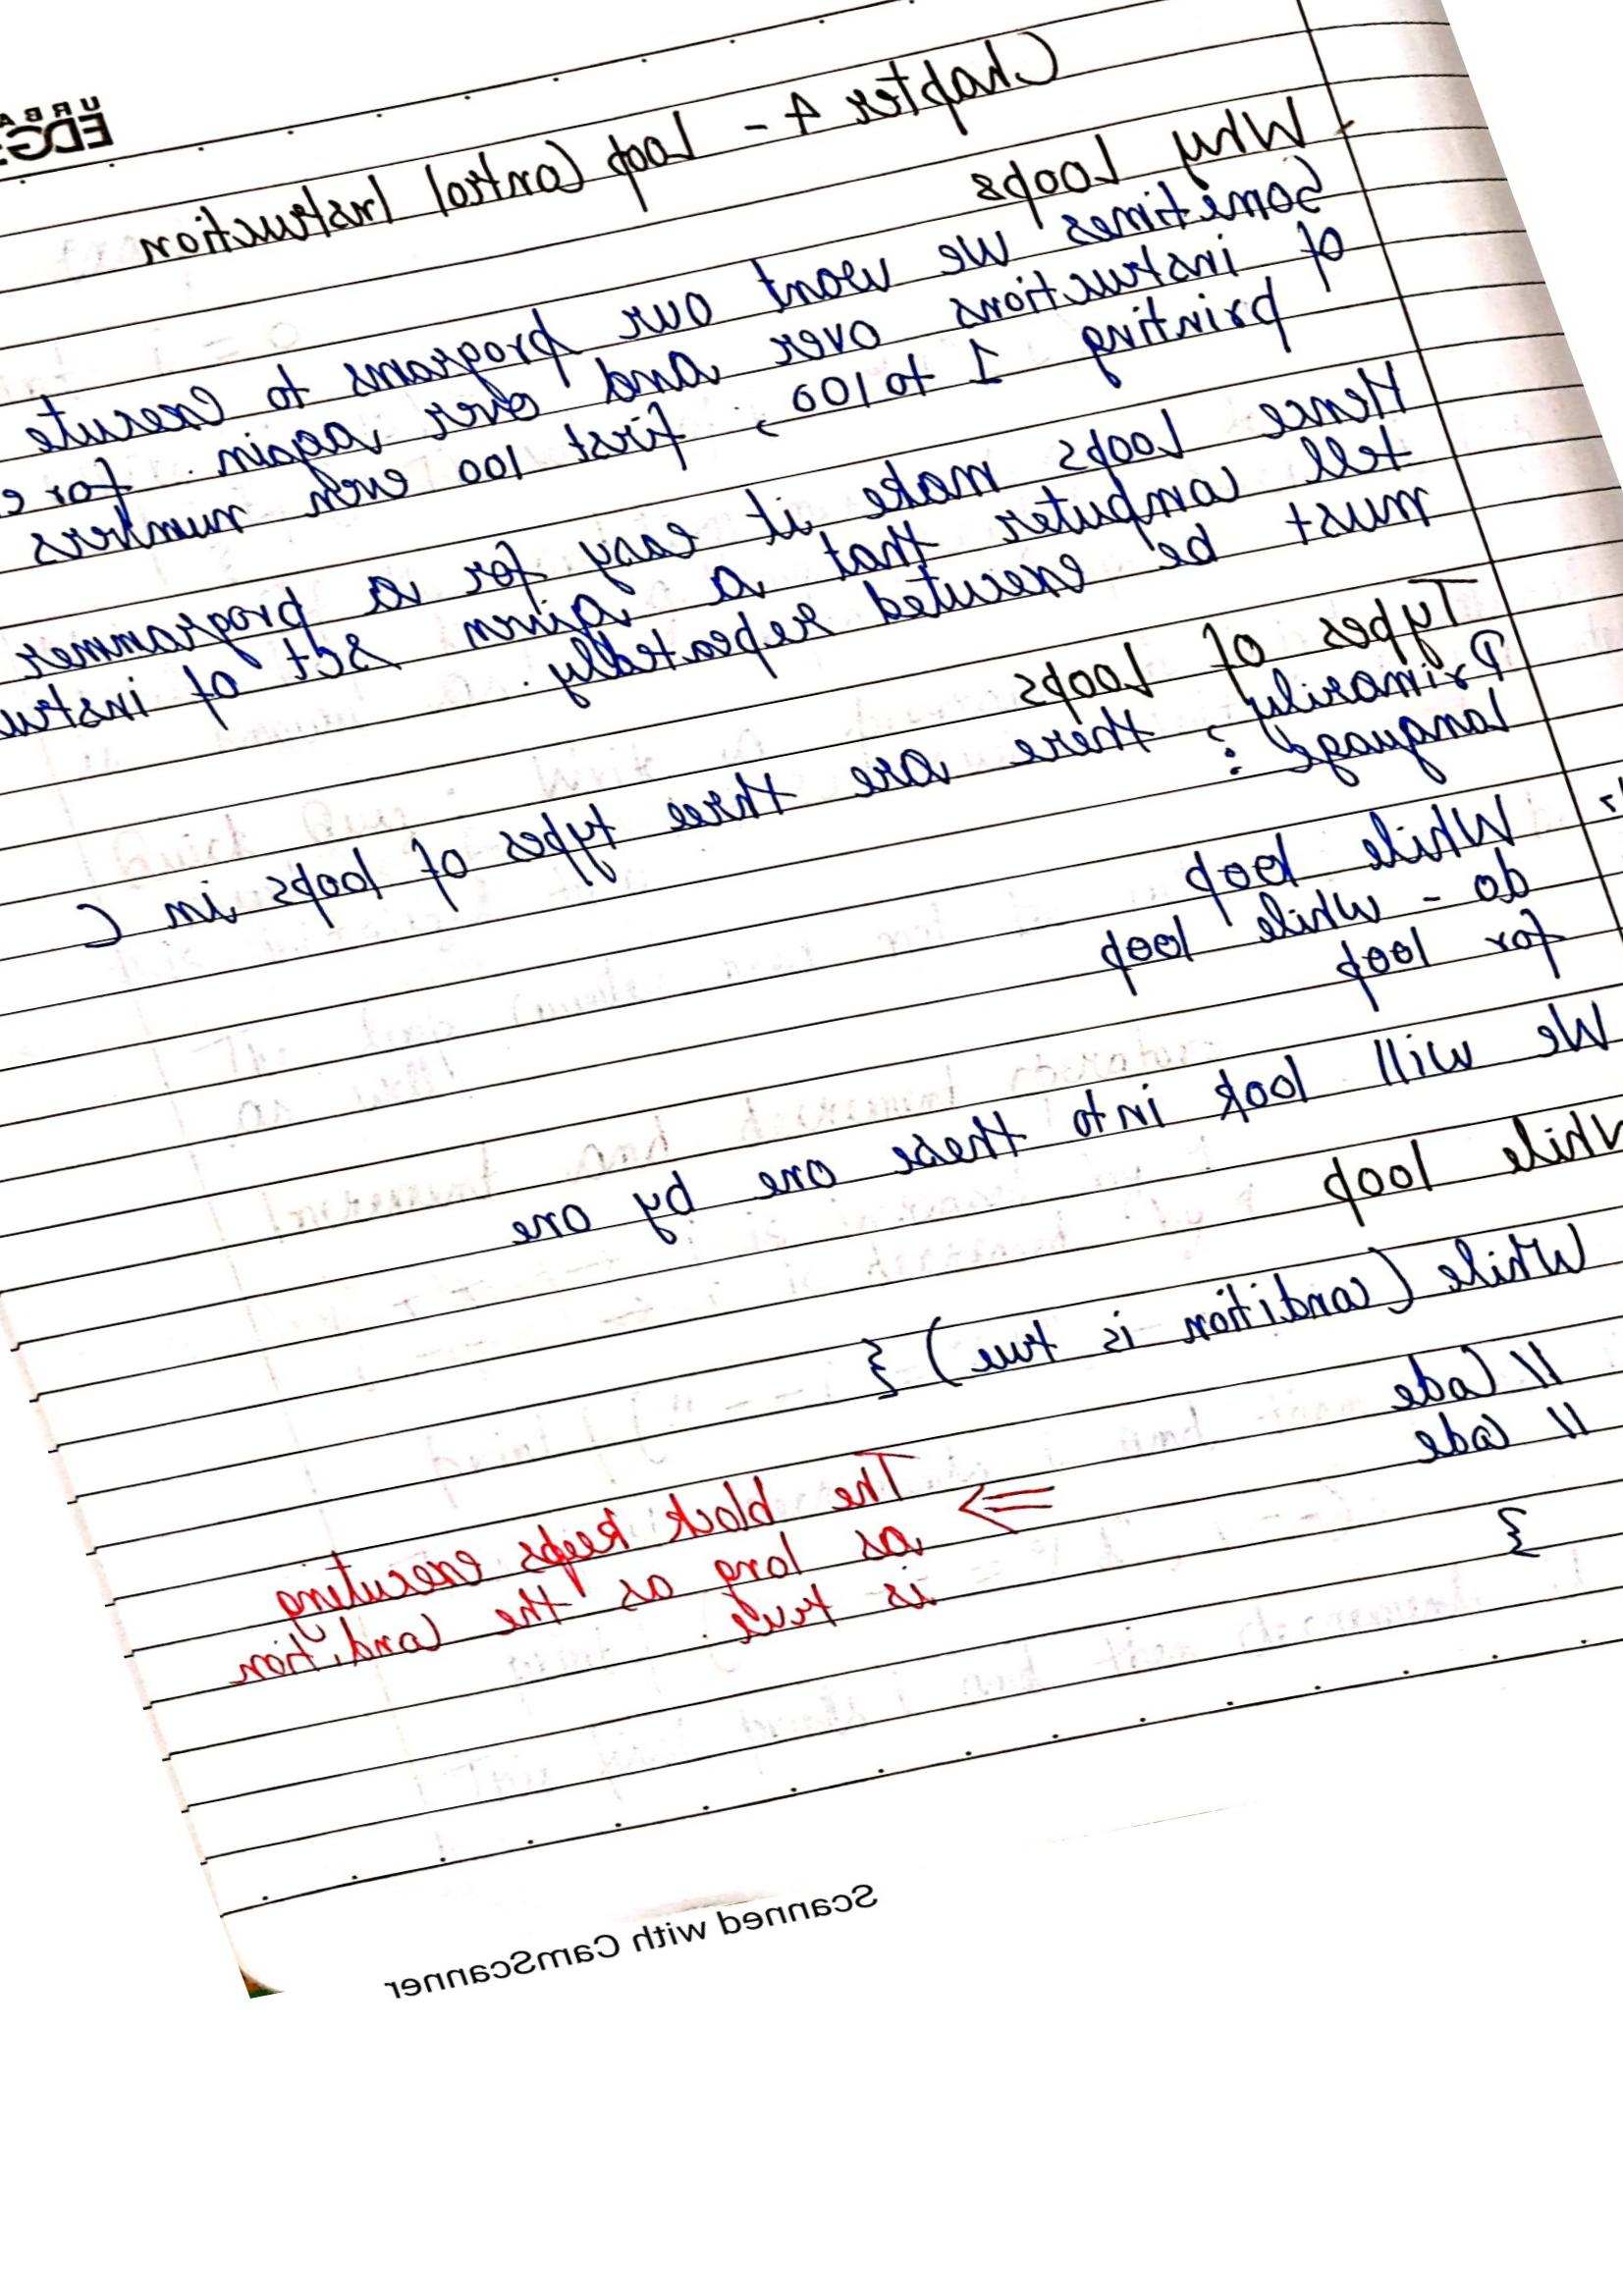 URBA
EDG
Chapter 4 - Loop Control Instruction
Why Loops
Sometimes we want our programs to execute
of instructions over and over again. for e
printing 1 to 100, first 100 even numbers
Hence Loops make it easy for a programmer
tell computer that a given set of instru
must be executed repeatedly.
Types of Loops
Primarily, there are three types of loops in C
Language :
While loop
do - while loop
for loop
We will look into these one by one
While loop
While (Condition is true) {
// Code
// Code
}
⇒ The block keeps executing
as long as the Condition
is true.
Scanned with CamScanner